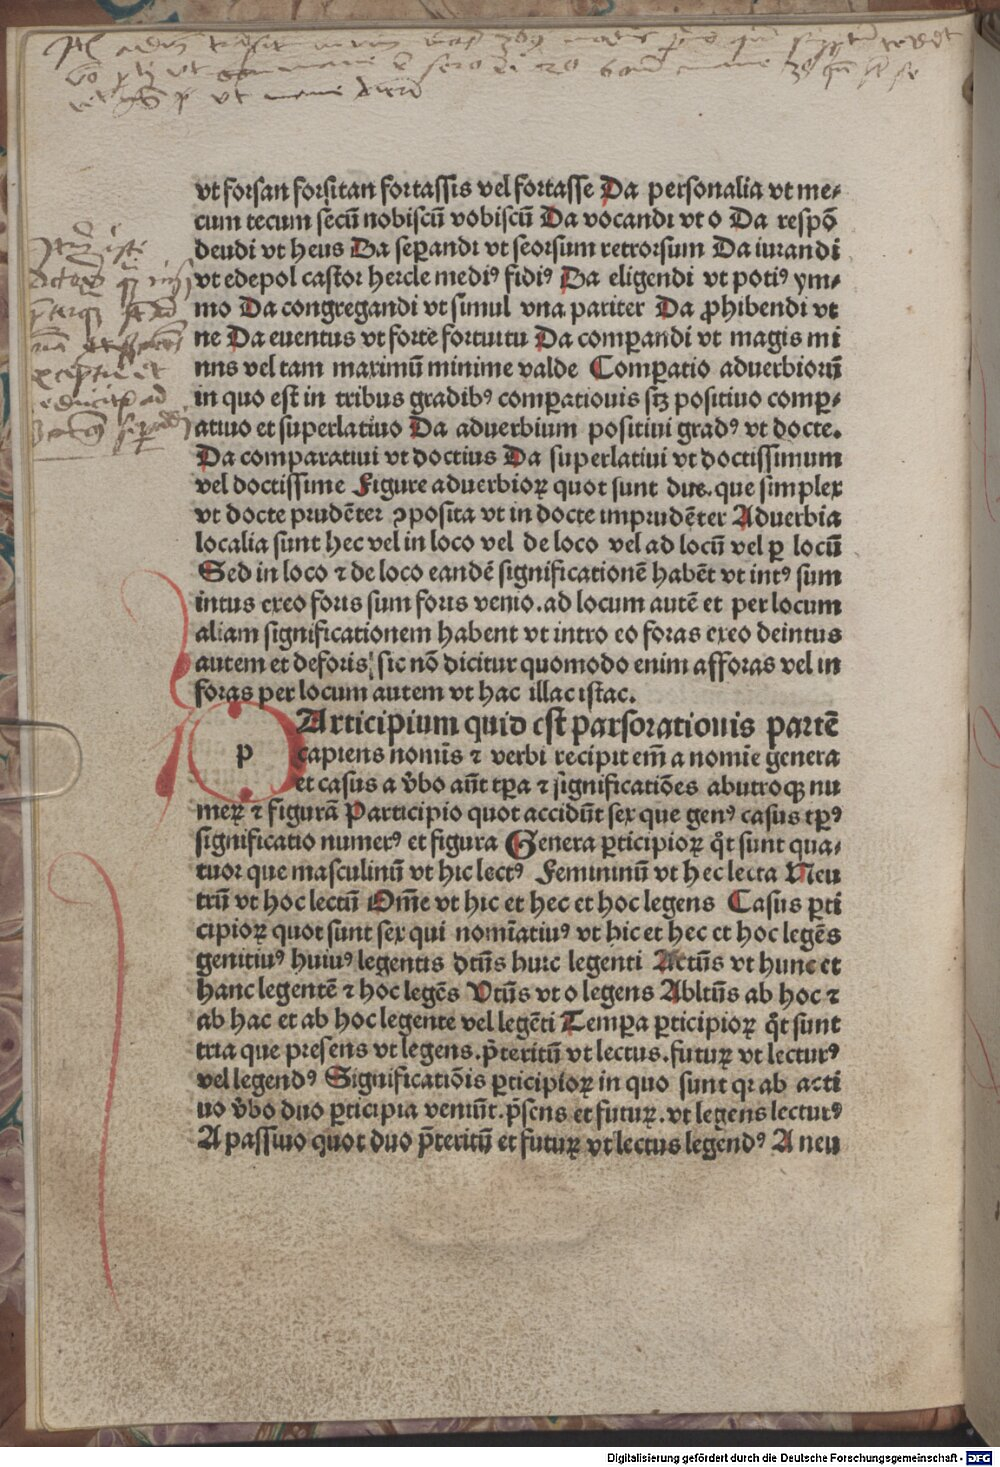 vt forsan forsitan fortassis vel fortasse Da personalia vt me⸗
cum tecum secū nobiscū vobiscū Da vocandi vt o Da respō
deudi vt heus Da seꝑandi vt seorsum retrorsum Da iurandi
vt edepol castor hercle mediꝰ fidiꝰ Da eligendi vt potiꝰ ym⸗
mo Da congregandi vt simul vna pariter Da ꝓhibendi vt
ne Da euentus vt forte fortuitu Da comꝑandi vt magis mi
nns vel tam maximū minime valde Comꝑatio aduerbiorū
in quo est in tribus gradibꝰ comꝑationis sꝫ positiuo comꝑ⸗
atiuo et superlatiuo Da aduerbium positiui gradꝰ vt docte.
Da comparatiui vt doctius Da superlatiui vt doctissimum
vel doctissime Figure aduerbioꝝ quot sunt due. que simplex
vt docte prudēter ꝯposita vt in docte imprudēter Aduerbia
localia sunt hec vel in loco vel de loco vel ad locū vel ꝑ locū
Sed in loco ⁊ de loco eandē significationē habēt vt intꝰ sum
intus exeo foris sum foris venio. ad locum autē et per locum
aliam significationem habent vt intro eo foras exeo deintus
autem et deforis sic nō dicitur quomodo enim afforas vel in
foras per locum autem vt hac illac istac.
p
PArticipium quid est parsorationis partē
capiens nomīs ⁊ verbi recipit em̄ a nomīe genera
et casus a v̄bo aūt tꝑa ⁊ significatiōes abutroqꝫ nu
meꝝ ⁊ figurā Participio quot accidūt sex que genꝰ casus tꝑꝰ
significatio numerꝰ et figura Genera ꝑticipioꝝ q̄t sunt qua⸗
tuor que masculinū vt hic lectꝰ Femininū vt hec lecta Neu
trū vt hoc lectū Om̄e vt hic et hec et hoc legens Casus ꝑti
cipioꝝ quot sunt sex qui nomīatiuꝰ vt hic et hec et hoc legēs
genitiuꝰ huiuꝰ legentis dtīs huic legenti Actūs vt hunc et
hanc legentē ⁊ hoc legēs Vtūs vt o legens Abltūs ab hoc ⁊
ab hac et ab hoc legente vel legēti Temꝑa ꝑticipioꝝ q̄t sunt
tria que presens vt legens. p̄teritū vt lectus. futuꝝ vt lecturꝰ
vel legendꝰ Significatiōis ꝑticipioꝝ in quo sunt qꝛ ab acti
uo v̄bo duo ꝑticipia veniūt. p̄sens et futuꝝ. vt legens lecturꝰ
A passiuo quot duo p̄teritū et futuꝝ vt lectus legendꝰ A neu
Digitalisierung gefördert durch die Deutsche Forschungsgemeinschaft - DFG